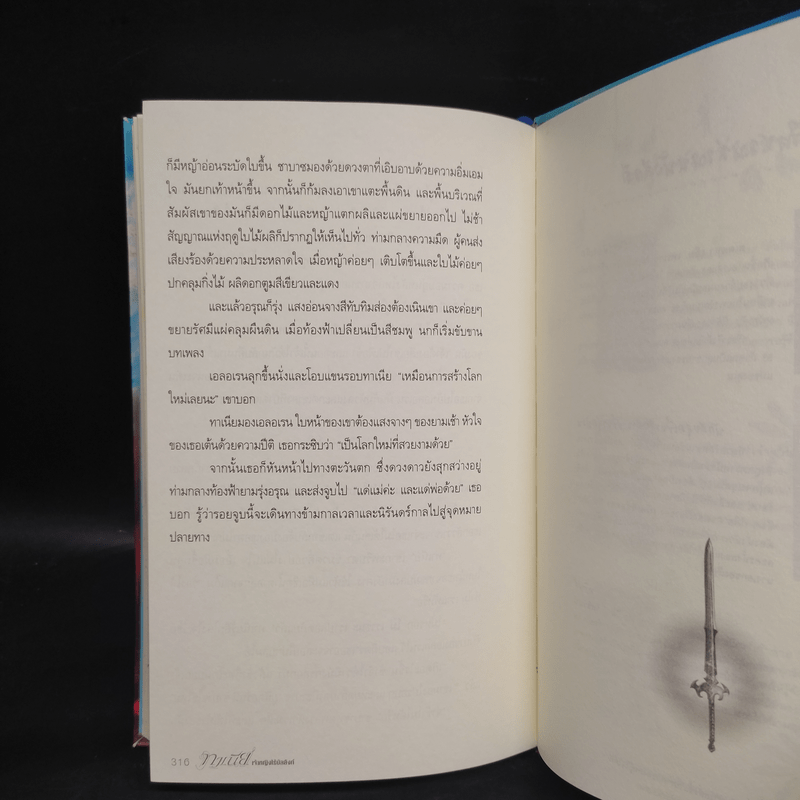 ก็มีหญ้าอ่อนระบัดใบขึ้น ซาบาซมองด้วยดวงตาที่เอิบอาบด้วยความอิ่มเอม
ใจ มันยกเท้าหน้าขึ้น จากนั้นก็ก้มลงเอาเขาแตะพื้นดิน และพื้นบริเวณที่
สัมผัสเขาของมันก็มีดอกไม้และหญ้าแตกผลิและแผ่ขยายออกไป ไม่ช้า
สัญญาณแห่งฤดูใบไม้ผลิก็ปรากฏให้เห็นไปทั่ว ท่ามกลางความมืด ผู้คนส่ง
เสียงร้องด้วยความประหลาดใจ เมื่อหญ้าค่อยๆ เติบโตขึ้นและใบไม้ค่อยๆ
ปกคลุมกิ่งไม้ ผลิดอกตูมสีเขียวและแดง
และแล้วอรุณก็รุ่ง แสงอ่อนจางสีทับทิมส่องต้องเนินเขา และค่อยๆ
ขยายรัศมีแผ่คลุมผืนดิน เมื่อท้องฟ้าเปลี่ยนเป็นสีชมพู นกก็เริ่มขับขาน
บทเพลง
เอลอเรนลุกขึ้นนั่งและโอบแขนรอบทาเนีย "เหมือนการสร้างโลก
ใหม่เลยนะ" เขาบอก
ทาเนียมองเอลอเรน ใบหน้าของเขาต้องแสงจางๆ ของยามเช้า หัวใจ
ของเธอเต้นด้วยความปีติ เธอกระซิบว่า "เป็นโลกใหม่ที่สวยงามด้วย"
จากนั้นเธอก็หันหน้าไปทางตะวันตก ซึ่งดวงดาวยังสุกสว่างอยู่
ท่ามกลางท้องฟ้ายามรุ่งอรุณ และส่งจูบไป "แด่แม่ค่ะ และแด่พ่อด้วย" เธอ
บอก รู้ว่ารอยจูบนี้จะเดินทางข้ามกาลเวลาและนิรันดร์กาลไปสู่จุดหมาย
ปลายทาง
316 ทาเนีย